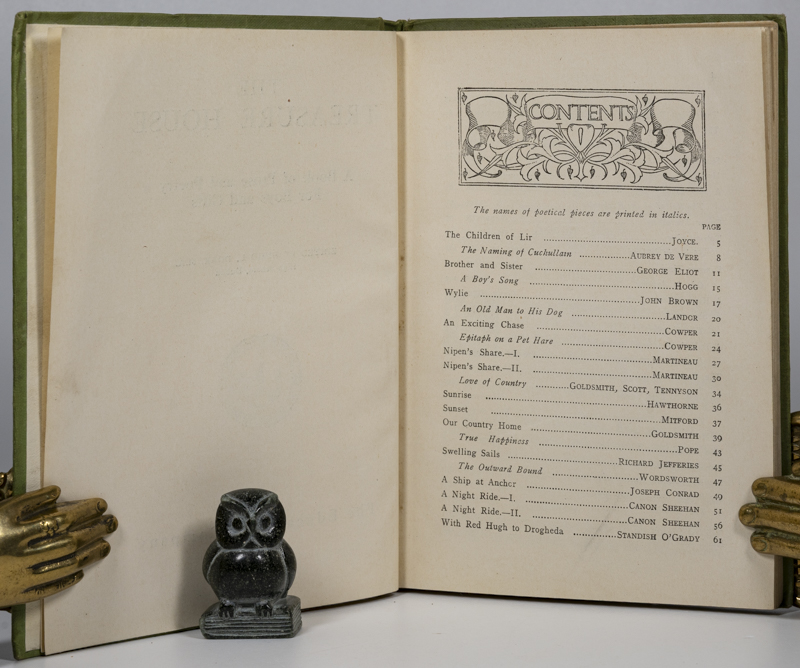 CONTENTS
The names of poetical pieces are printed in italics.
PAGE
The Children of Lir ........ JOYCE. 5
The Naming of Cuchullain ........ AUBREY DE VERE 8
Brother and Sister ........ GEORGE ELIOT 11
A Boy's Song ........ HOGG 15
Wylie ........ JOHN BROWN 17
An Old Man to His Dog ........ LANDOR 20
An Exciting Chase ........ COWPER 21
Epitaph on a Pet Hare ........ COWPER 24
Nipen's Share.—I. ........ MARTINEAU 27
Nipen's Share.—II. ........ MARTINEAU 30
Love of Country ........ GOLDSMITH, SCOTT, TENNYSON 34
Sunrise ........ HAWTHORNE 36
Sunset ........ MITFORD 37
Our Country Home ........ GOLDSMITH 39
True Happiness ........ POPE 43
Swelling Sails ........ RICHARD JEFFERIES 45
The Outward Bound ........ WORDSWORTH 47
A Ship at Anchor ........ JOSEPH CONRAD 49
A Night Ride.—I. ........ CANON SHEEHAN 51
A Night Ride.—II. ........ CANON SHEEHAN 56
With Red Hugh to Drogheda ........ STANDISH O'GRADY 61